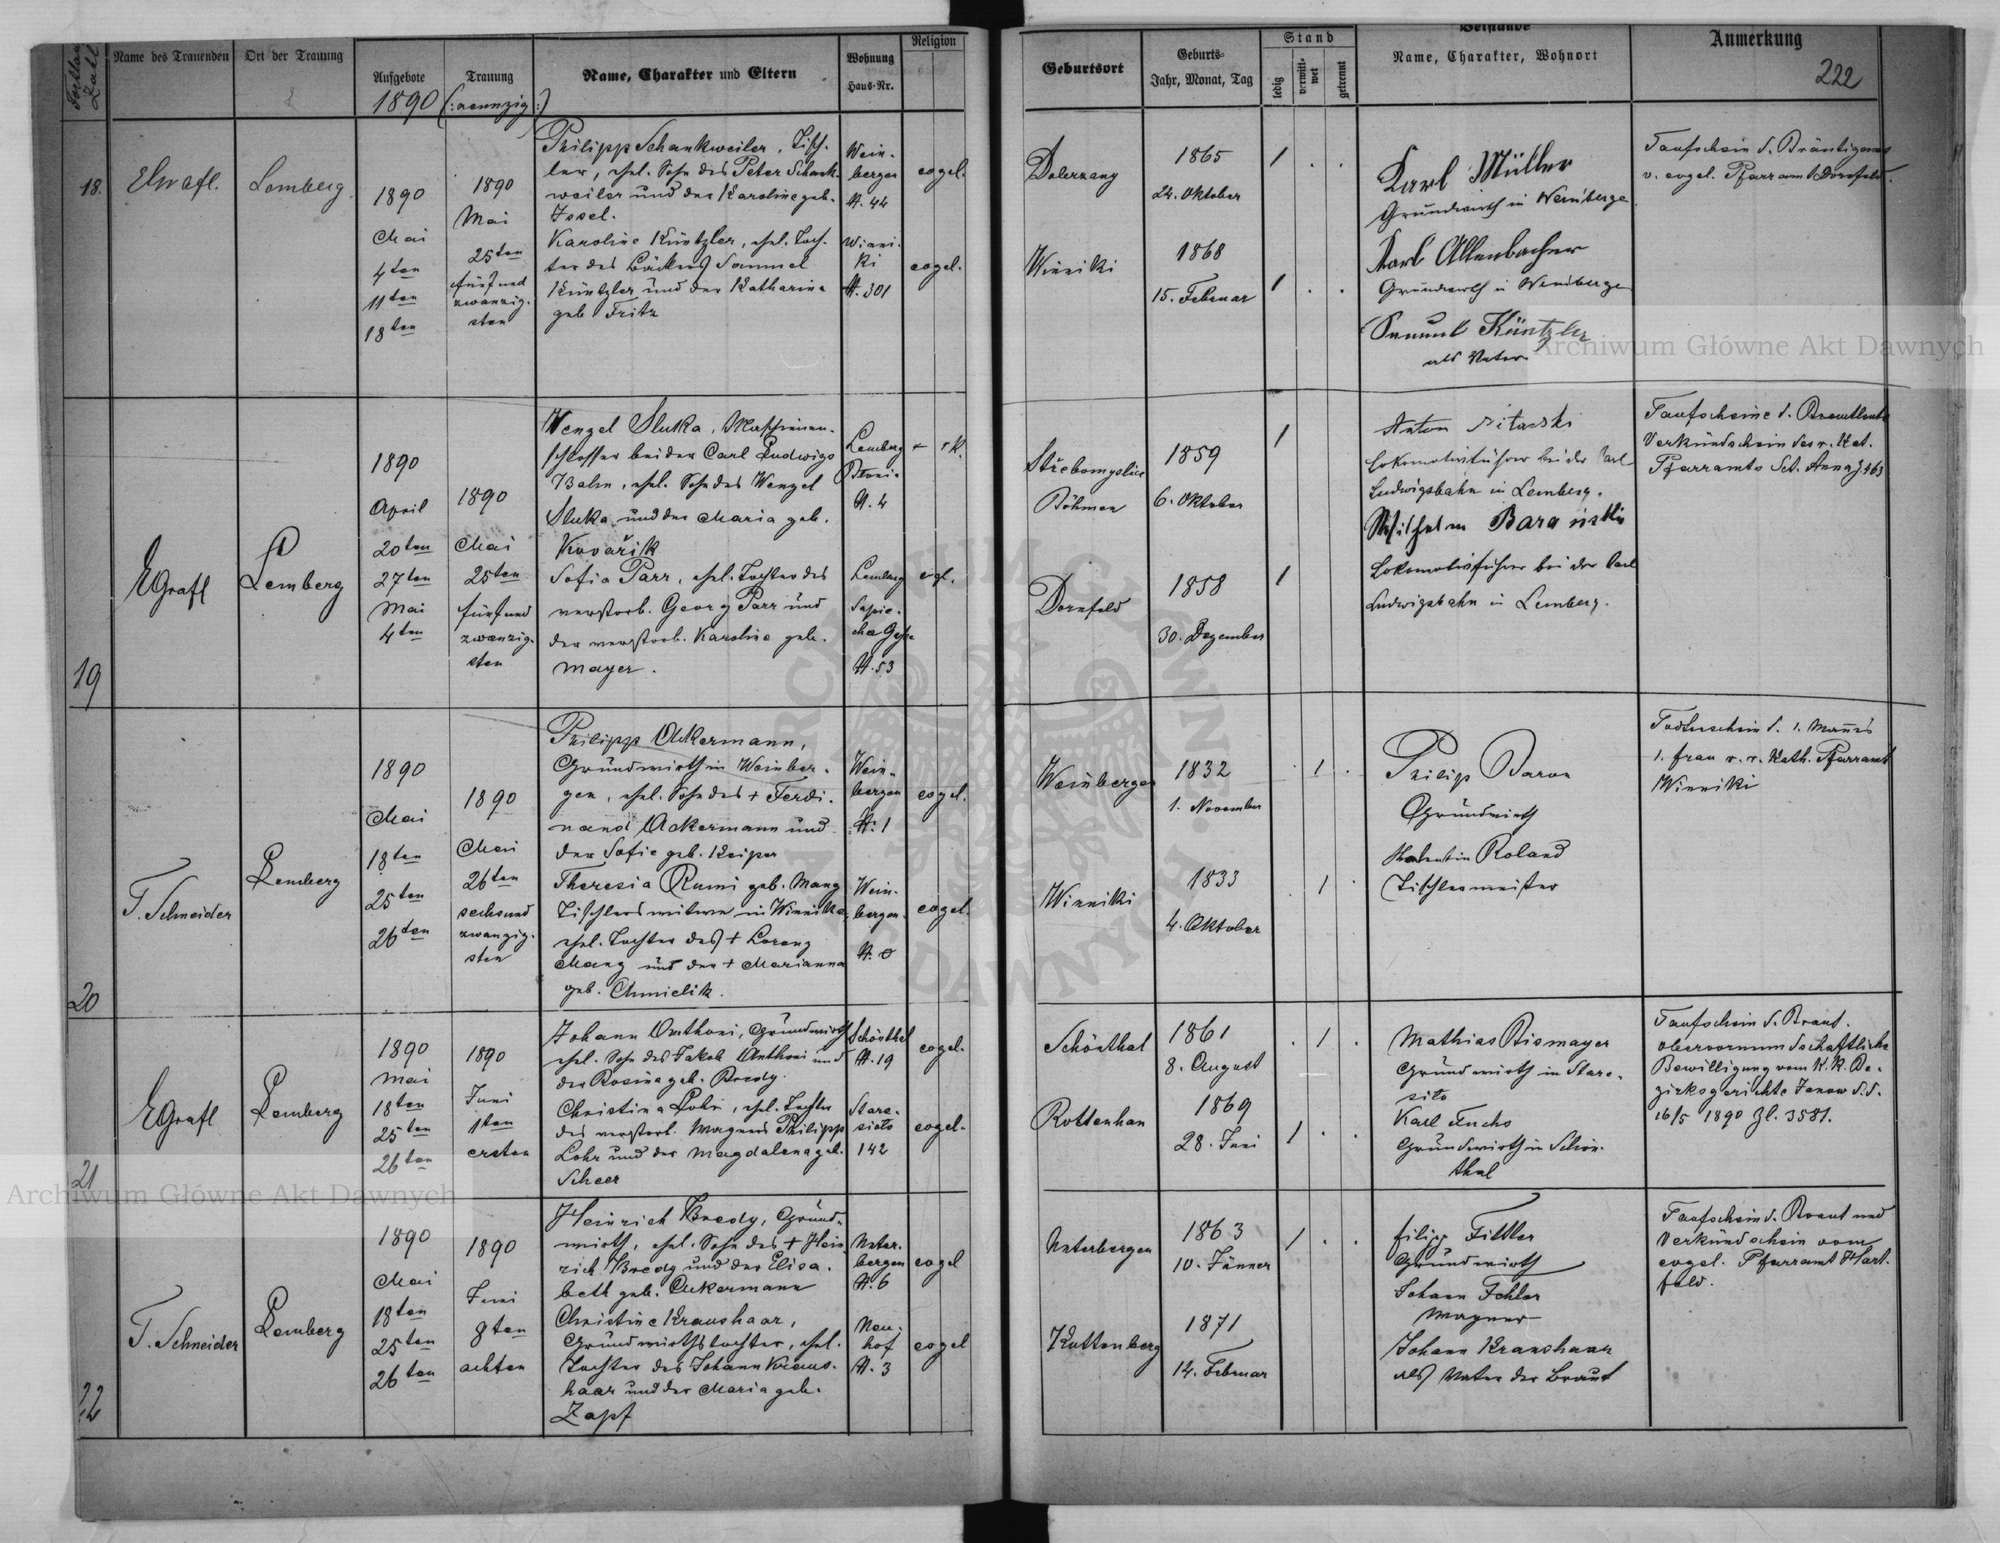 Fortlau Zahl
Name des Trauenden
Ort der Trauung
Aufgebote
Trauung
Name, Charakter und Eltern
Wohnung
Haus-Nr.
Religion
1890 (:neunzig:)
18.
EGrafl.
Lemberg
1890
Mai
4ten
11ten
18ten
1890
Mai
25ten
fünf und
zwanzig-
sten
Philipp Schankweiler, Tisch-
ler, ehel. Sohn des Peter Schank
weiler und der Karoline geb.
Josel.
Karoline Küntzler, ehel. Toch-
ter des Bäckers Samuel
Küntzler und der Katharina
geb. Fritz
Wein-
bergen
N. 44
Winni-
ki
N. 301
evgel.
evgel.
19
EGrafl
Lemberg
1890
April
20ten
27ten
Mai
4ten
1890
Mai
25ten
fünf und
zwanzig-
sten
Wenzel Sluka, Maschinen-
schlosser bei der Carl Ludwigs
Bahn, ehel. Sohn des Wenzel
Sluka und der Maria geb.
Kovařik
Sofia Parr, ehel. Tochter des
verstorb. Georg Parr und
der verstorb. Karoline geb.
Mayer.
Lemberg
N. 4
Lemberg
Sapie-
cha Gasse
N. 53
r. k.
evgl.
20
T. Schneider
Lemberg
1890
Mai
18ten
25ten
26ten
1890
Mai
26ten
sechs und
zwanzig-
sten
Philipp Ackermann,
Grundwirth in Weinber-
gen, ehel. Sohn des + Ferdi-
nand Ackermann und
der Sofie geb. Keiper
Theresia Rumi geb. Mang
Tischlerswitwe in Winniki,
ehel. Tochter des + Lorenz
Mang und der + Marianna
geb. Chmielik.
Wein-
bergen
N. 1
Wein-
bergen
N. 0
evgel.
evgel.
21
EGrafl
Lemberg
1890
Mai
18ten
25ten
26ten
1890
Juni
1ten
ersten
Johann Anthoni, Grundwirth
ehel. Sohn des Jakob Anthoni und
der Rosina geb. Bredy.
Christina Lohr, ehel. Tochter
des verstorb. Wagners Philipp
Lohr und der Magdalena geb.
Scheer
Schönthal
N. 19
Stare-
sioto
142
evgel.
evgel.
22
T. Schneider
Lemberg
1890
Mai
18ten
25ten
26ten
1890
Juni
8ten
achten
Heinrich Bredy, Grund-
wirth, ehel. Sohn des + Hein
rich Bredy und der Elisa-
beth geb. Ackermann
Christine Kraushaar,
Grundwirthstochter, ehel.
Tochter des Johann Kraus-
haar und der Maria geb.
Zapf
Unter-
bergen
N. 6
Neu-
hof
N. 3
evgel
evgel
Geburtsort
Geburts-
Jahr, Monat, Tag
Stand
ledig
verwitt-
wet
getrennt
Beistände
Name, Charakter, Wohnort
Anmerkung
222
Winniki
1865
24. Oktober
1868
15. Februar
1
1
Karl Müller
Grundwirth in Weinberge
Karl Allenbacher
Grundwirth in Weinberge
Samuel Küntzler
als Vater
Taufschein d. Bräutigams
v. evgel. Pfarramt Dornfeld
Archiwum Główne Akt Dawnych
Střebomyslice
Böhmen
Dornfeld
1859
6. Oktober
1858
30. Dezember
1
1
Anton
Lokomotivführer bei der Carl
Ludwigsbahn in Lemberg.
Wilhelm Baranski
Lokomotivführer bei der Carl
Ludwigsbahn in Lemberg.
Taufscheine d. Brautleute
Verkündschein des r. kat.
Pfarramts Sct. Anna
Weinbergen
Winniki
1832
1. November
1833
4. Oktober
1
1
Philipp Baron
Grundwirth
Valentin Roland
Tischlermeister
Todtenschein d. 1. Mannes
1. Frau v. r. Kath. Pfarramt
Winniki
Schönthal
Rottenhan
1861
8. August
1869
28. Juni
1
1
Mathias Bismayer
Grundwirth in Stare-
sito
Karl Fuchs
Grundwirth in Schön-
thal
Taufschein d. Braut.
obervormundschaftliche
Bewilligung vom K. K. Be-
zirksgerichte Janow d. d.
16/5 1890 Zl. 3581.
Unterbergen
Kuttenberg
1863
10. Jänner
1871
14. Februar
1
Filipp
Grundwirth
Johann
Wagner
Johann Kraushaar
als Vater der Braut
Taufschein d. Braut und
Verkündschein vom
evgel. Pfarramt Hart-
feld.
Archiwum Główne Akt Dawnych